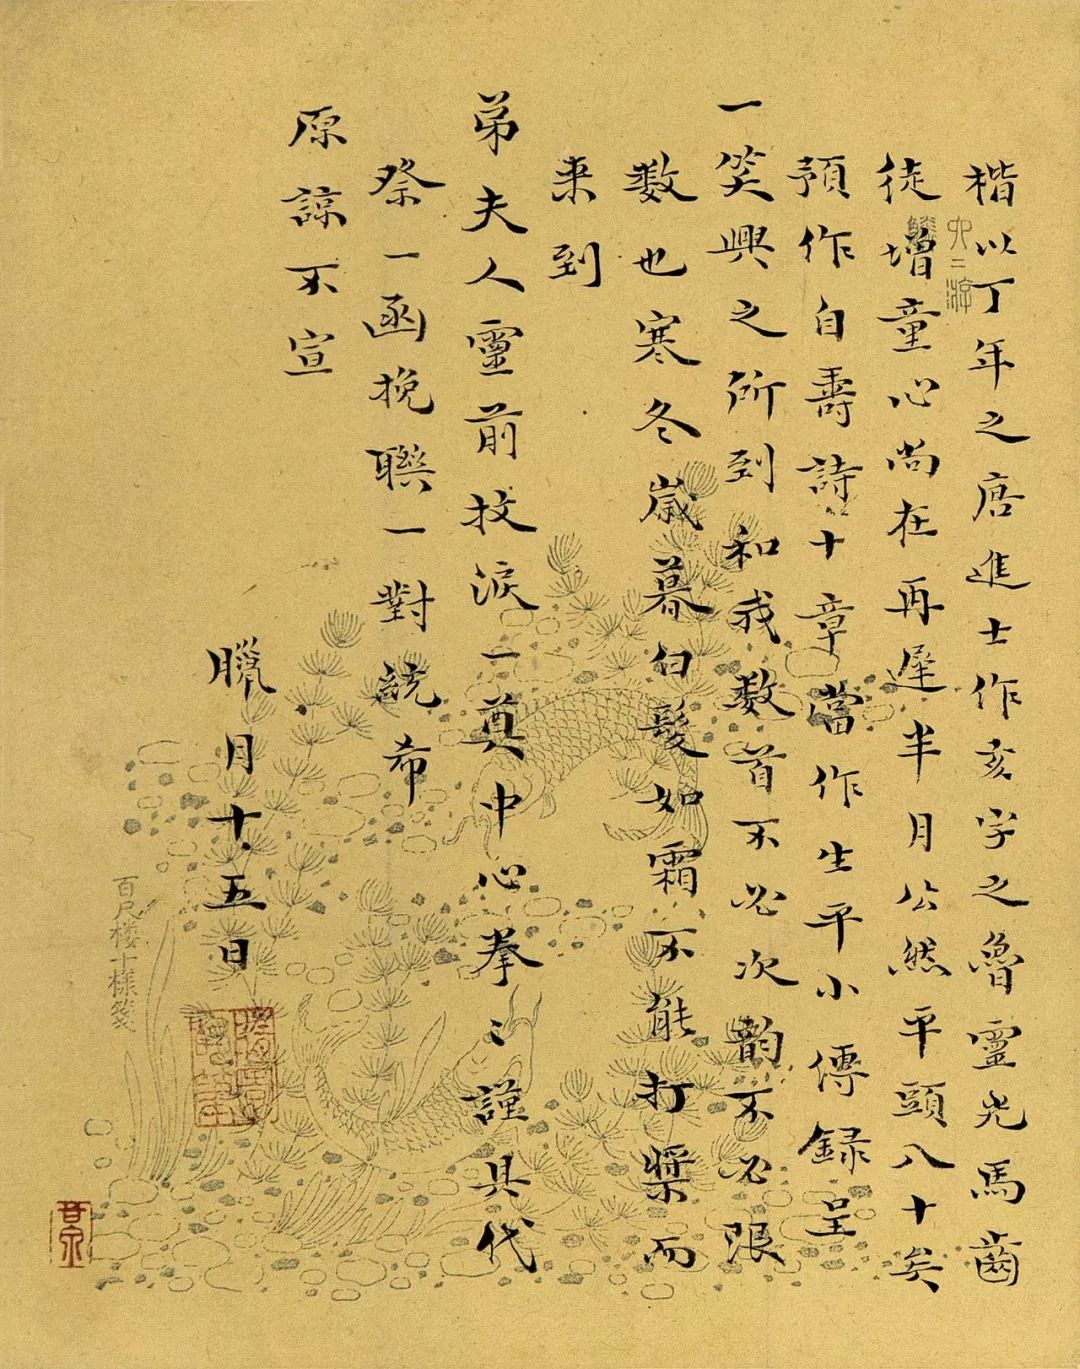 楷以丁年之唐進士作亥字之魯靈光馬齒
徒增童心尚在再遲半月公然平頭八十矣
預作自壽詩十章當作生平小傳録呈
一笑興之所到和我數首不必次韵不必限
數也寒冬嵗暮白髮如霜不能打槳而
来到
弟夫人靈前抆淚一奠中心拳〻謹具代
祭一函挽聯一對統希
原諒不宣
臘月十五日
百尺楼十樣箋